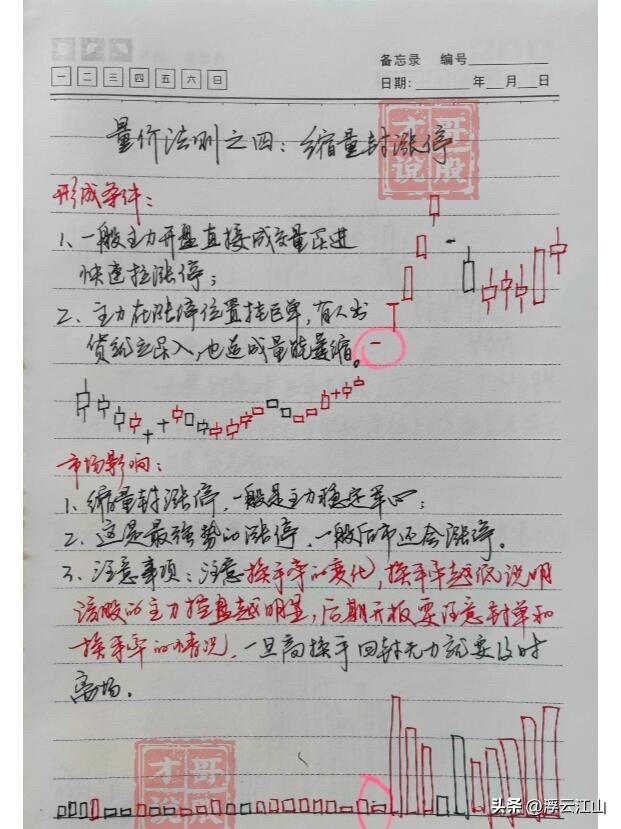 备忘录 编号
一 二 三 四 五 六 日
日期: 年 月 日
量价法则之四：缩量封涨停
才哥说股
形成条件：
1、一般主力开盘直接成交量跃进
快速拉涨停；
2、主力在涨停位置挂巨单，有人出
货就立买入，也造成量能萎缩。
市场影响：
1、缩量封涨停，一般是主力稳定军心；
2、这是最强势的涨停，一般后市还会涨停。
3、注意事项：注意换手率的变化，换手率越低说明
该股的主力控盘越明显，后期开板要注意封单和
换手率的情况，一旦高换手回封无力就要及时
离场。
才哥说股
头条 @浮云江山